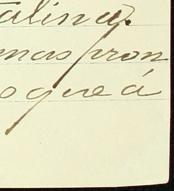 talina.
mas pron
o que á